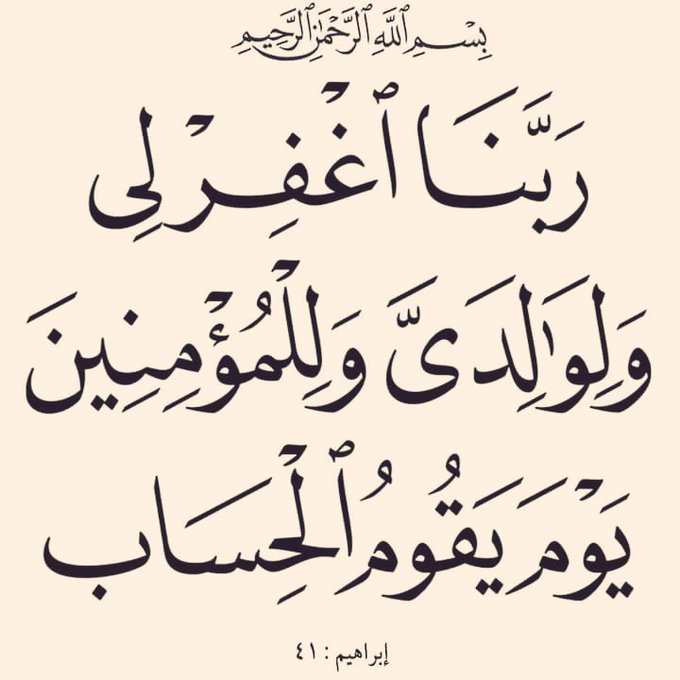 بِسْمِ ٱللَّهِ ٱلرَّحْمَٰنِ ٱلرَّحِيمِ
رَبَّنَا ٱغْفِرْ لِى
وَلِوَٰلِدَىَّ وَلِلْمُؤْمِنِينَ
يَوْمَ يَقُومُ ٱلْحِسَاب
إبراهيم : ٤١